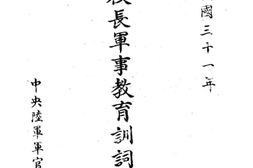 國三十一年
校長軍事教育訓詞
中央陸軍軍官